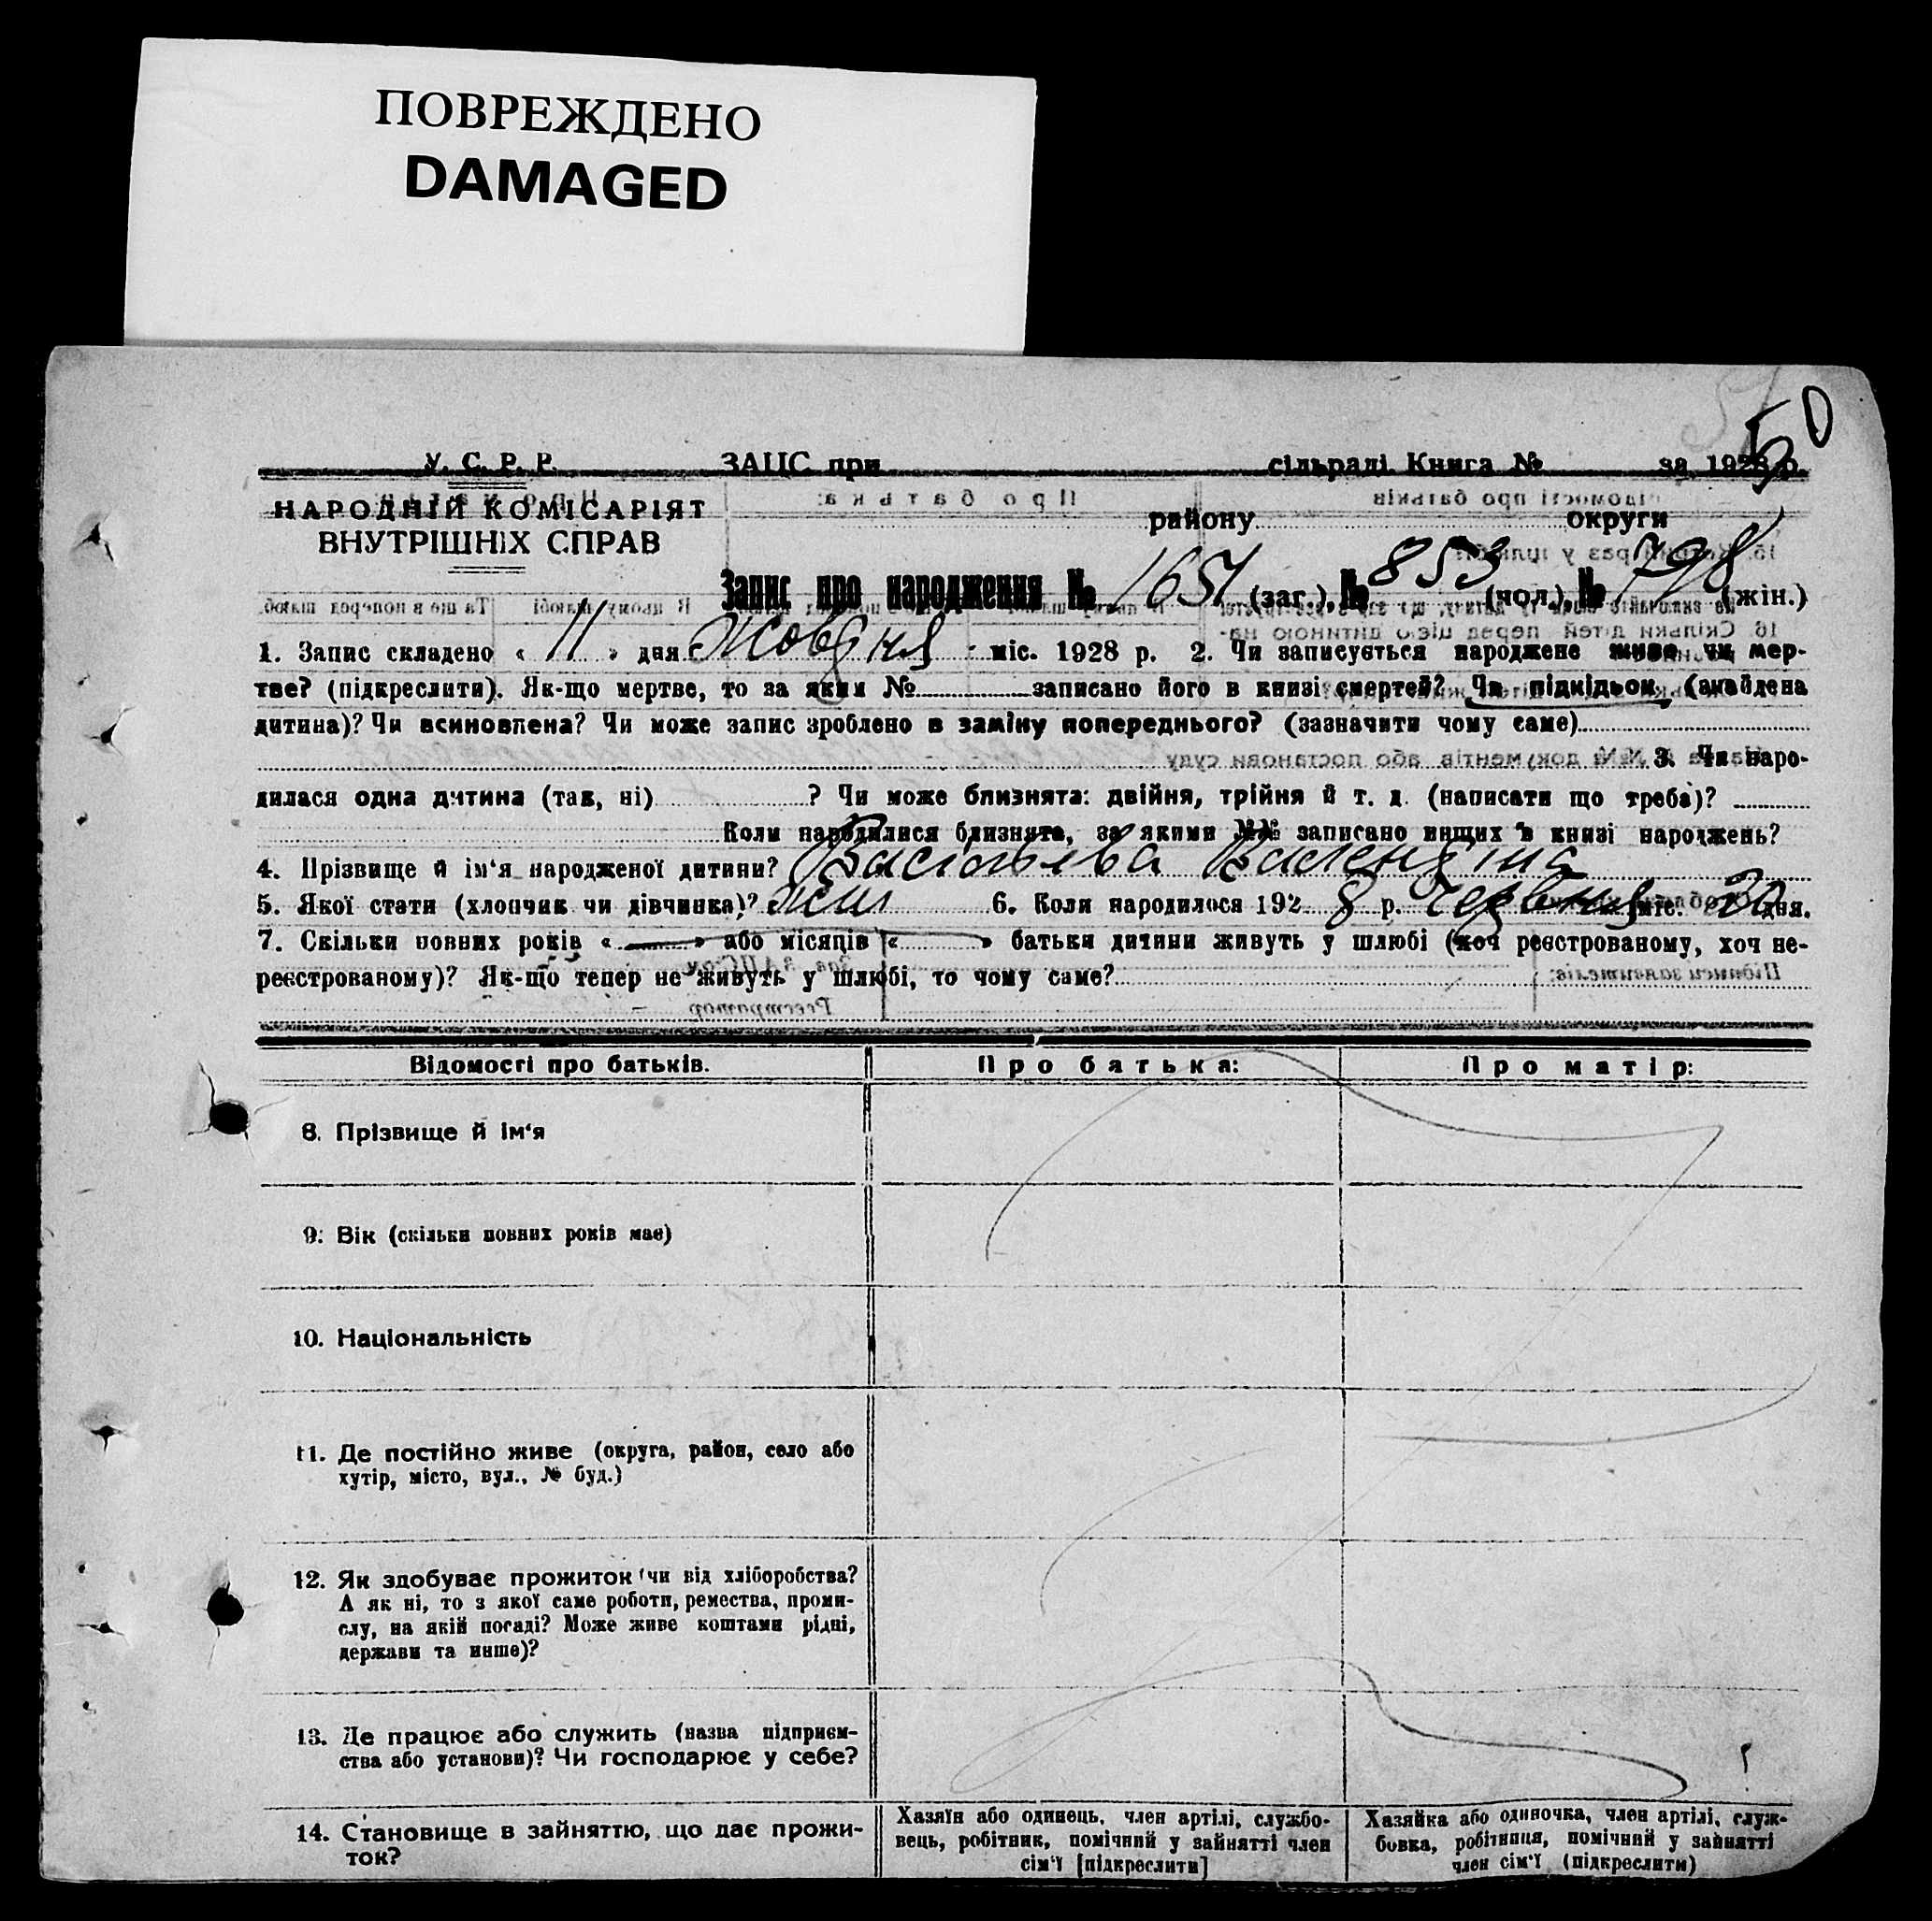 ПОВРЕЖДЕНО
DAMAGED
50
У. С. Р. Р. ЗАЦС при сільраді Книга № за 1928 р.
НАРОДНІЙ КОМІСАРІЯТ
району округи
ВНУТРІШНІХ СПРАВ
Запис про народження № 1651 (заг.), № 853 (чол.), № 798 (жін.)
1. Запис складено « 11 » дня Жовтня міс. 1928 р. 2. Чи записується народжене живе чи мер-
тве? (підкреслити). Як-що мертве, то за яким № записано його в книзі смертей? Чи підкідьок (знайдена
дитина)? Чи всиновлена? Чи може запис зроблено в заміну попереднього? (зазначити чому саме)
3. Чи наро-
дилася одна дитина (так, ні) ? Чи може близнята: двійня, трійня й т. д. (написати що треба)?
Коли народилися близнята, за якими №№ записано инщих в книзі народжень?
4. Прізвище й ім‘я народженої дитини? Васильєва Валентина
5. Якої стати (хлопчик чи дівчинка)? жін 6. Коли народилося 1928 р. Червня міс. 30 дня.
7. Скільки повних років « » або місяців « » батьки дитини живуть у шлюбі (хоч реєстрованому, хоч не-
реєстрованому)? Як-що тепер не живуть у шлюбі, то чому саме?
Відомості про батьків. Про батька: Про матір:
8. Прізвище й ім‘я
9. Вік (скільки повних років має)
10. Національність
11. Де постійно живе (округа, район, село або
хутір, місто, вул., № буд.)
12. Як здобуває прожиток (чи від хліборобства?
А як ні, то з якої саме роботи, ремества, проми-
слу, на якій посаді? Може живе коштами рідні,
держави та инше)?
13. Де працює або служить (назва підприєм-
ства або установи)? Чи господарює у себе?
14. Становище в зайняттю, що дає прожи-
ток?
Хазяїн або одинець, член артілі, службо-
вець, робітник, помічний у зайнятті член
сім‘ї [підкреслити]
Хазяйка або одиночка, член артілі, служ-
бовка, робітниця, помічний у зайнятті
член сім‘ї (підкреслити)